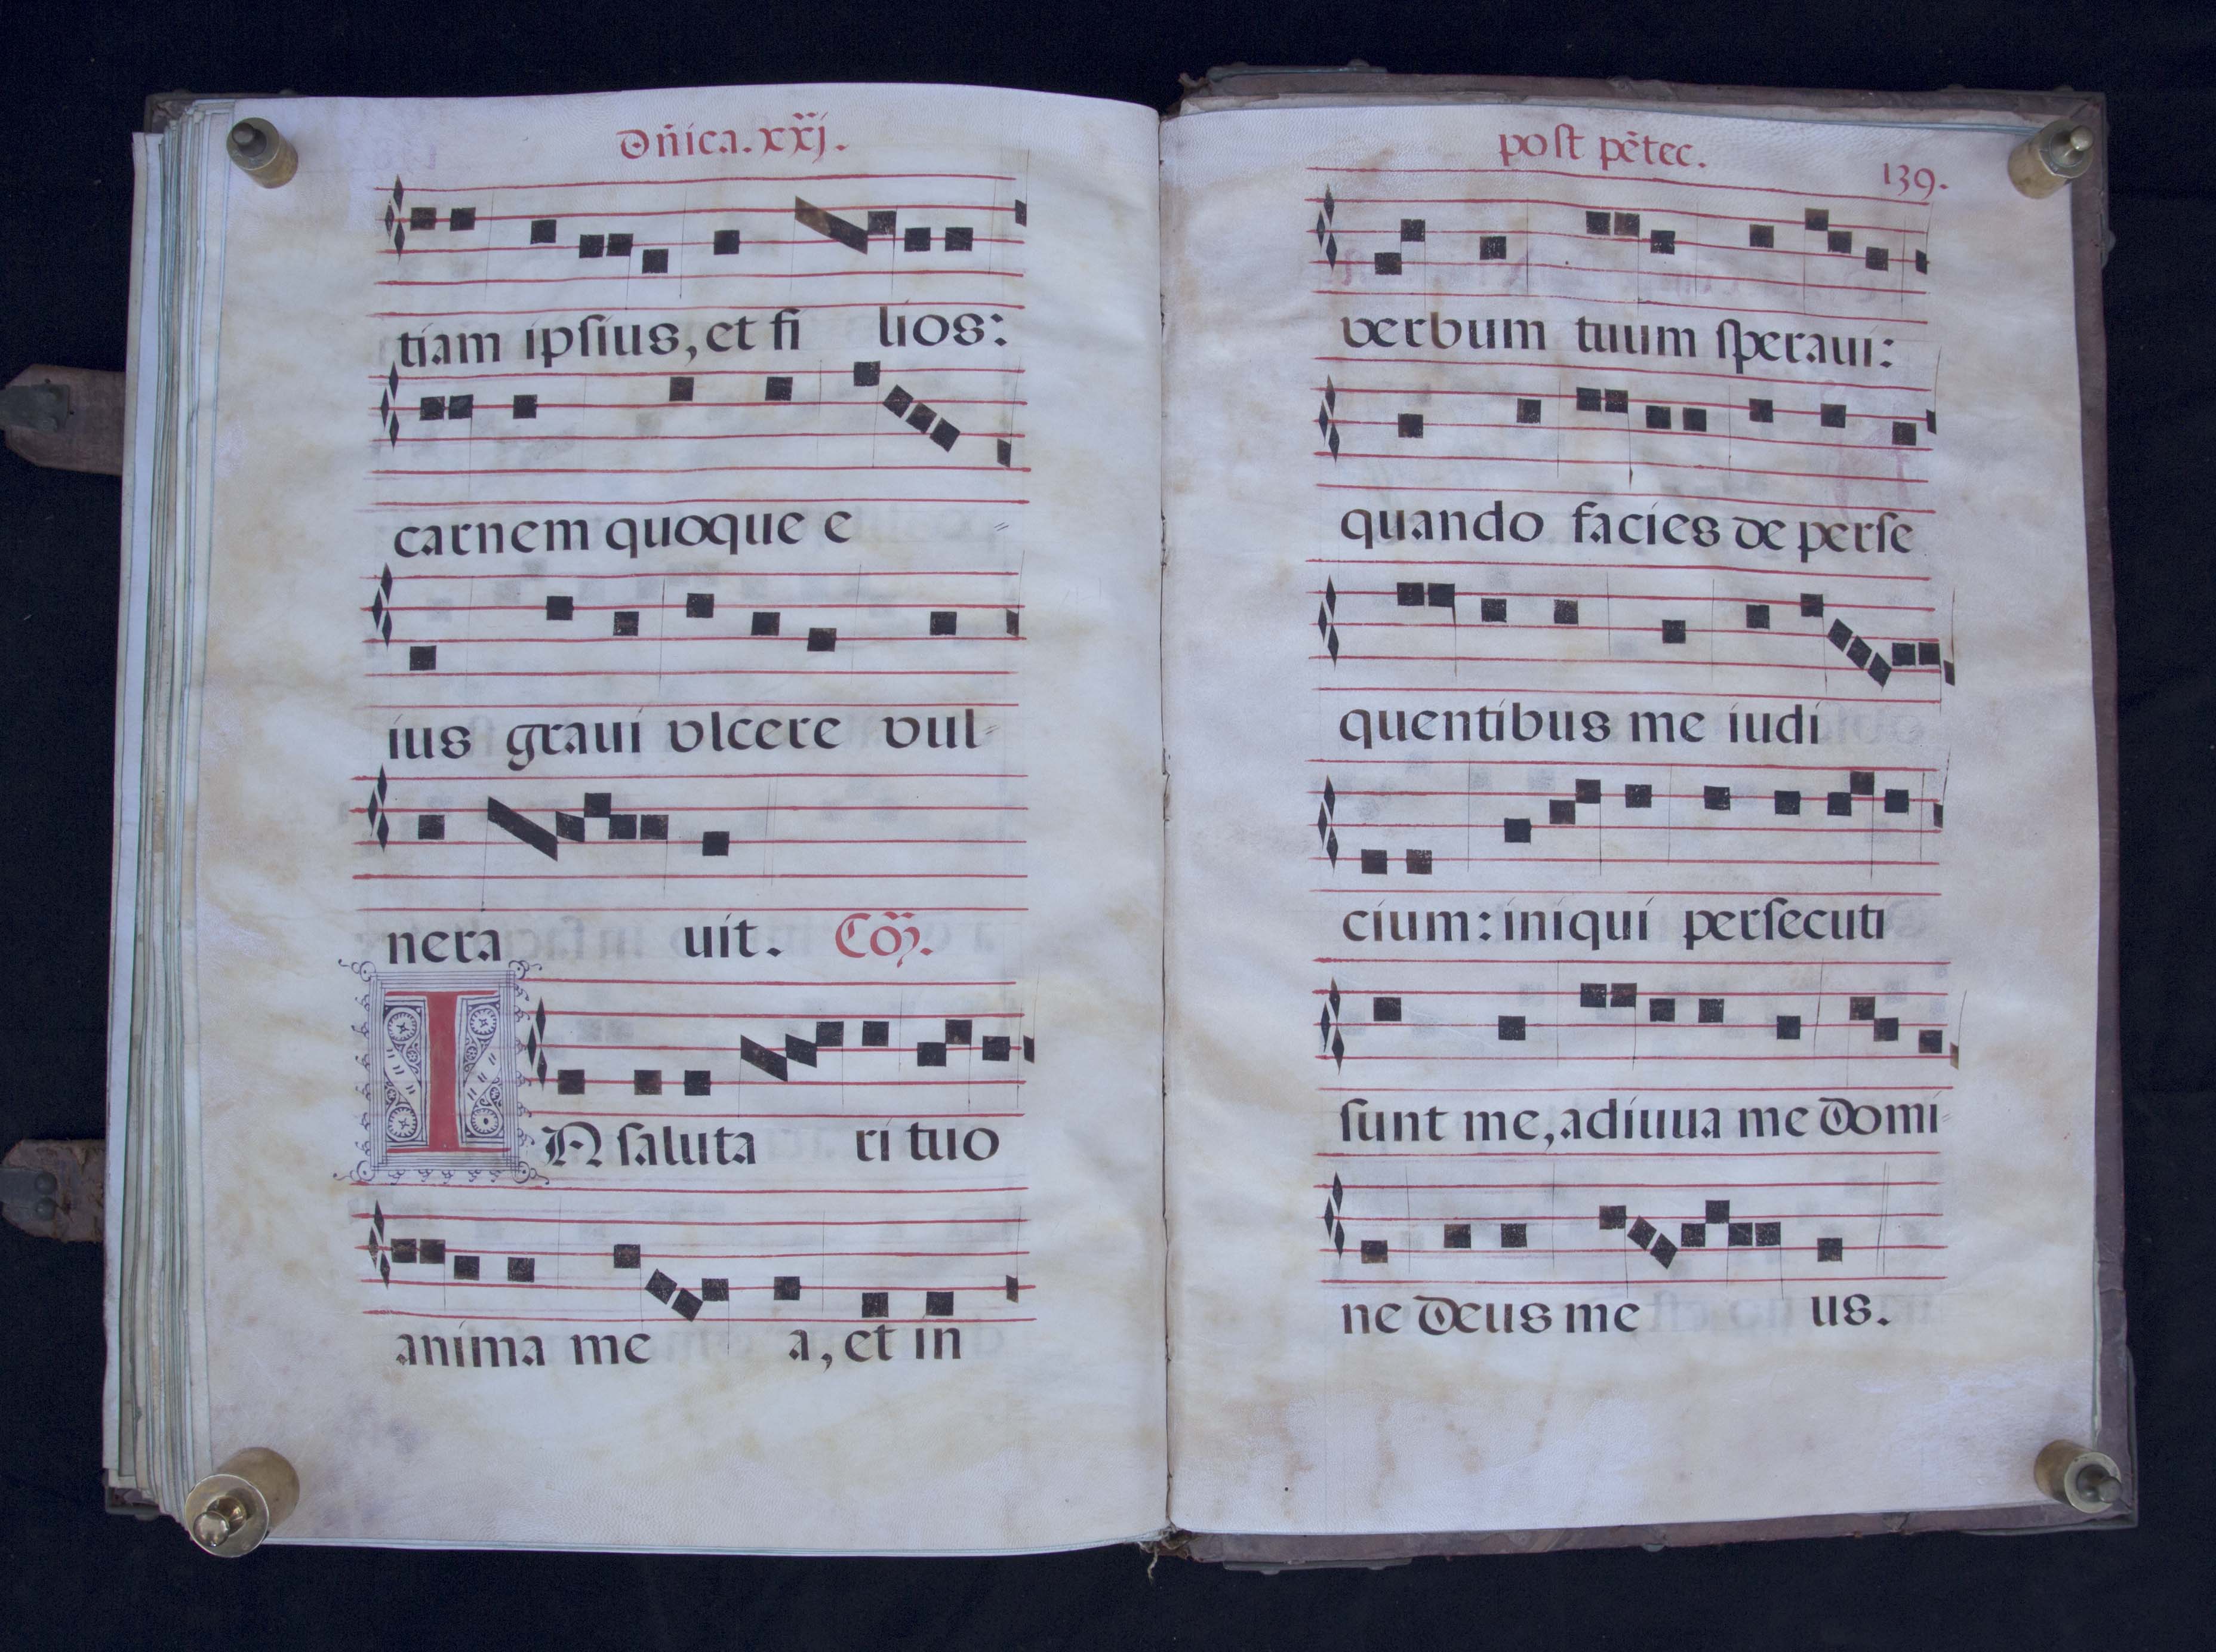 Dn̄ica. xxj.
tiam ipſius, et fi lios:
carnem quoque e
ius graui vlcere vul-
nera uit. Cõ.
IN ſaluta ri tuo
anima me a, et in
poſt pẽtec.
139.
verbum tuum ſperaui:
quando facies de perſe
quentibus me iudi
cium: iniqui perſecuti
ſunt me, adiuua me domi-
ne deus me us.